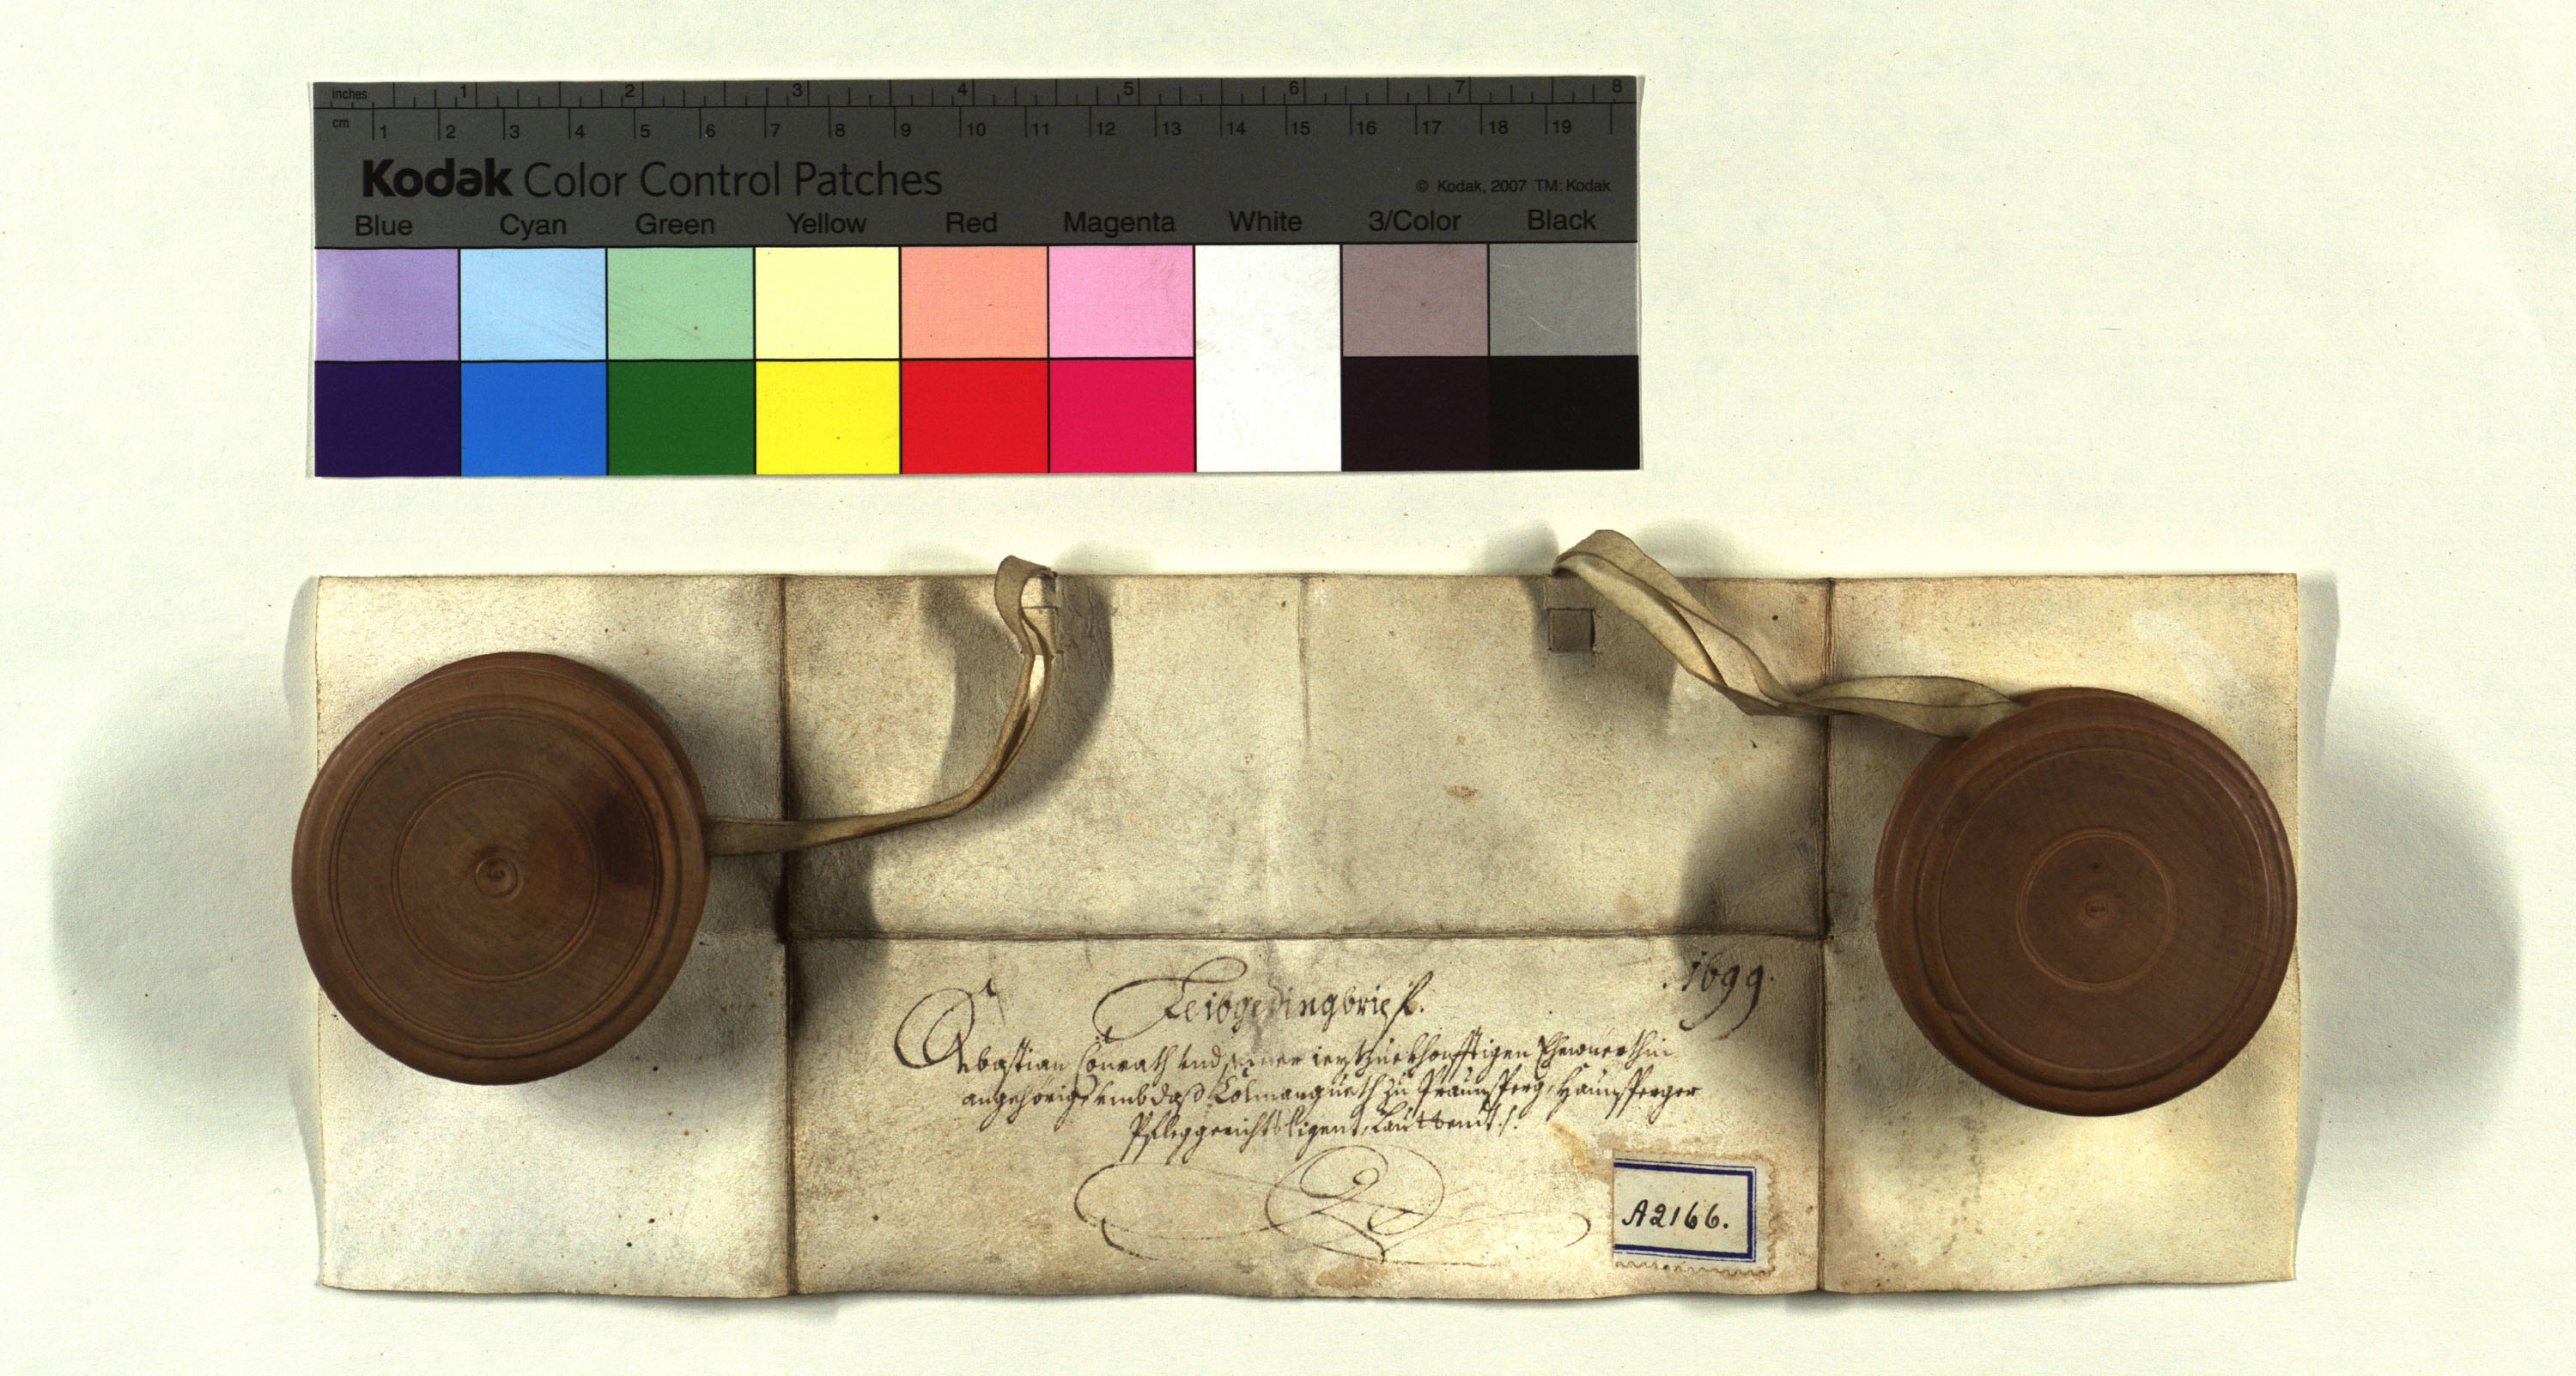 inches 1 2 3 4 5 6 7 8
cm 1 2 3 4 5 6 7 8 9 10 11 12 13 14 15 16 17 18 19
Kodak Color Control Patches
© Kodak, 2007 TM: Kodak
Blue Cyan Green Yellow Red Magenta White 3/Color Black
.1699.
Leibgedingbrief.
Sebastian Conrath und seiner Ehewürthin
angehörig, umb daß Colmangueth zu Praunsperg, Haunsperger
Pfleggerichts ligent, Lauttendt./.
A2166.